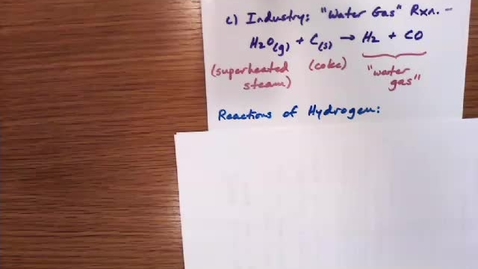 c) Industry: "Water Gas" Rxn. -
H₂O(g) + C(s) → H₂ + CO
(superheated steam) (coke) "water gas"
Reactions of Hydrogen: